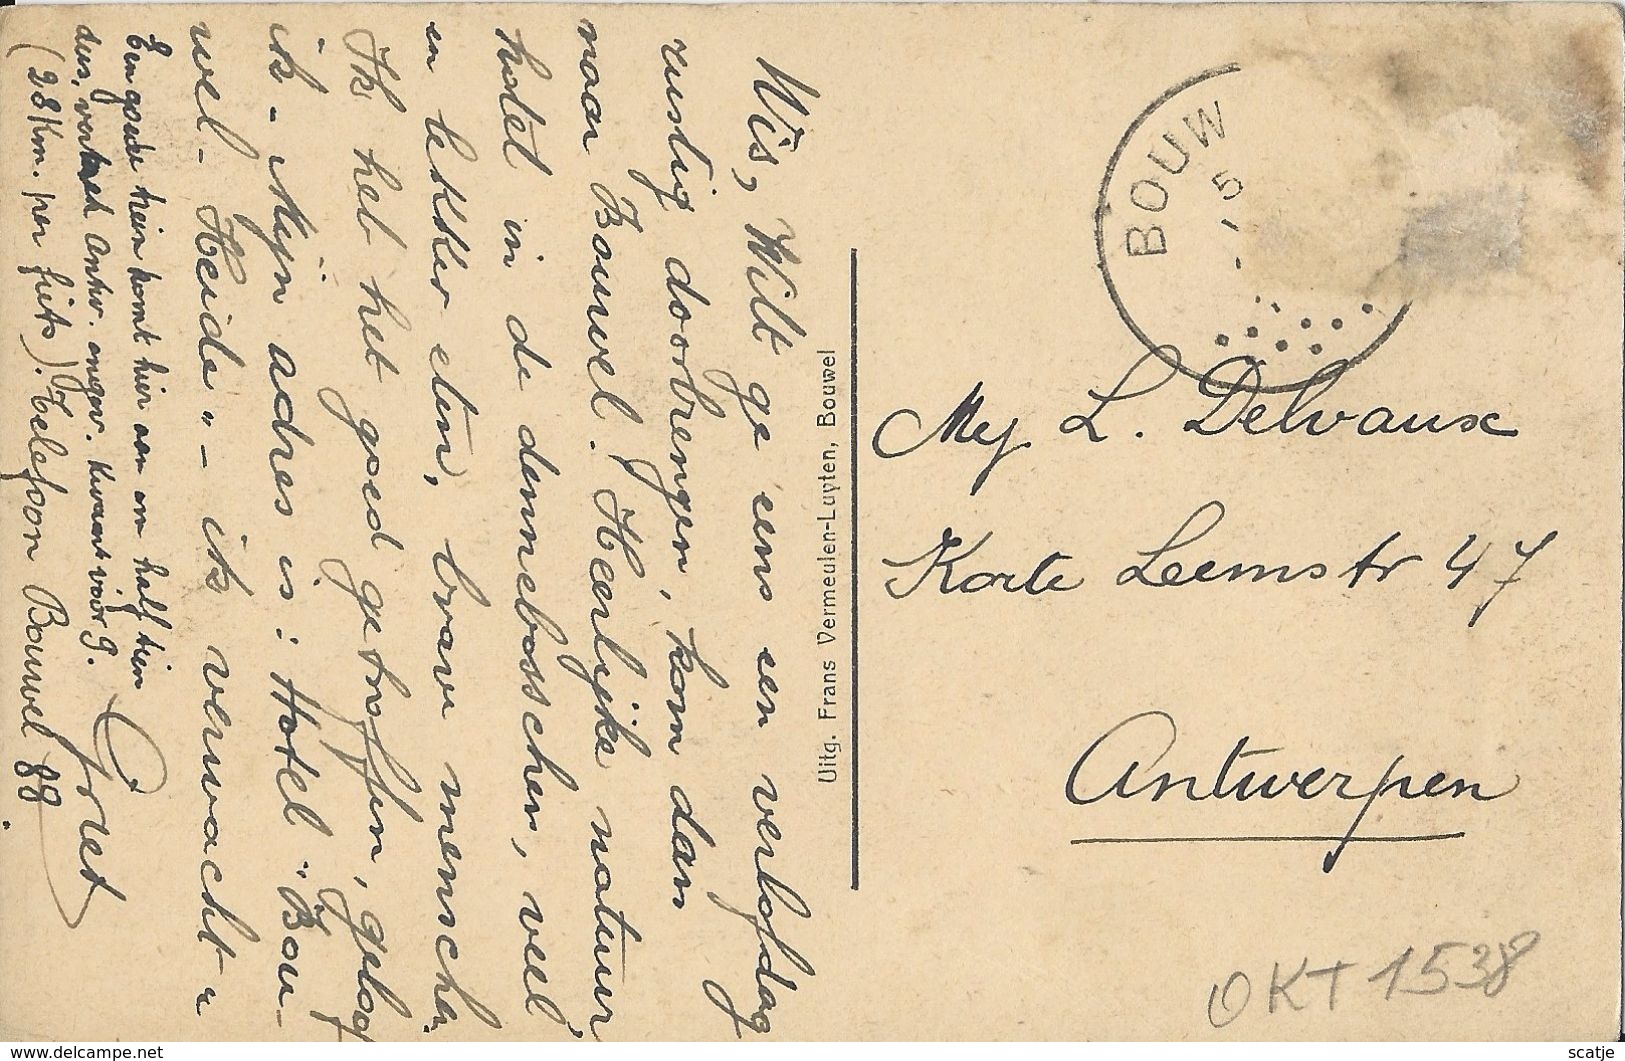 Wis, Wilt ge eens een verlofdag
rustig doorbrengen, kom dan
naar Bouwel. Heerlijke natuur
hotel in de dennebosschen, veel
en lekker eten, brave menschen
Ik heb het goed getroffen, geloof
ik - Mijn adres is: Hotel "Bou-
wel - Heide" - ik verwacht u
Een goede trein komt hier aan om half tien
dus, vertrek Antw. ongev. kwart vóór 9.
(28 Km. per fiets). Telefoon Bouwel 88
Griet
Uitg. Frans Vermeulen-Luyten, Bouwel
BOUW
5
Mej L. Delvaux
Korte Leemstr 47
Antwerpen
OKT 1538
© www.delcampe.net
scatje